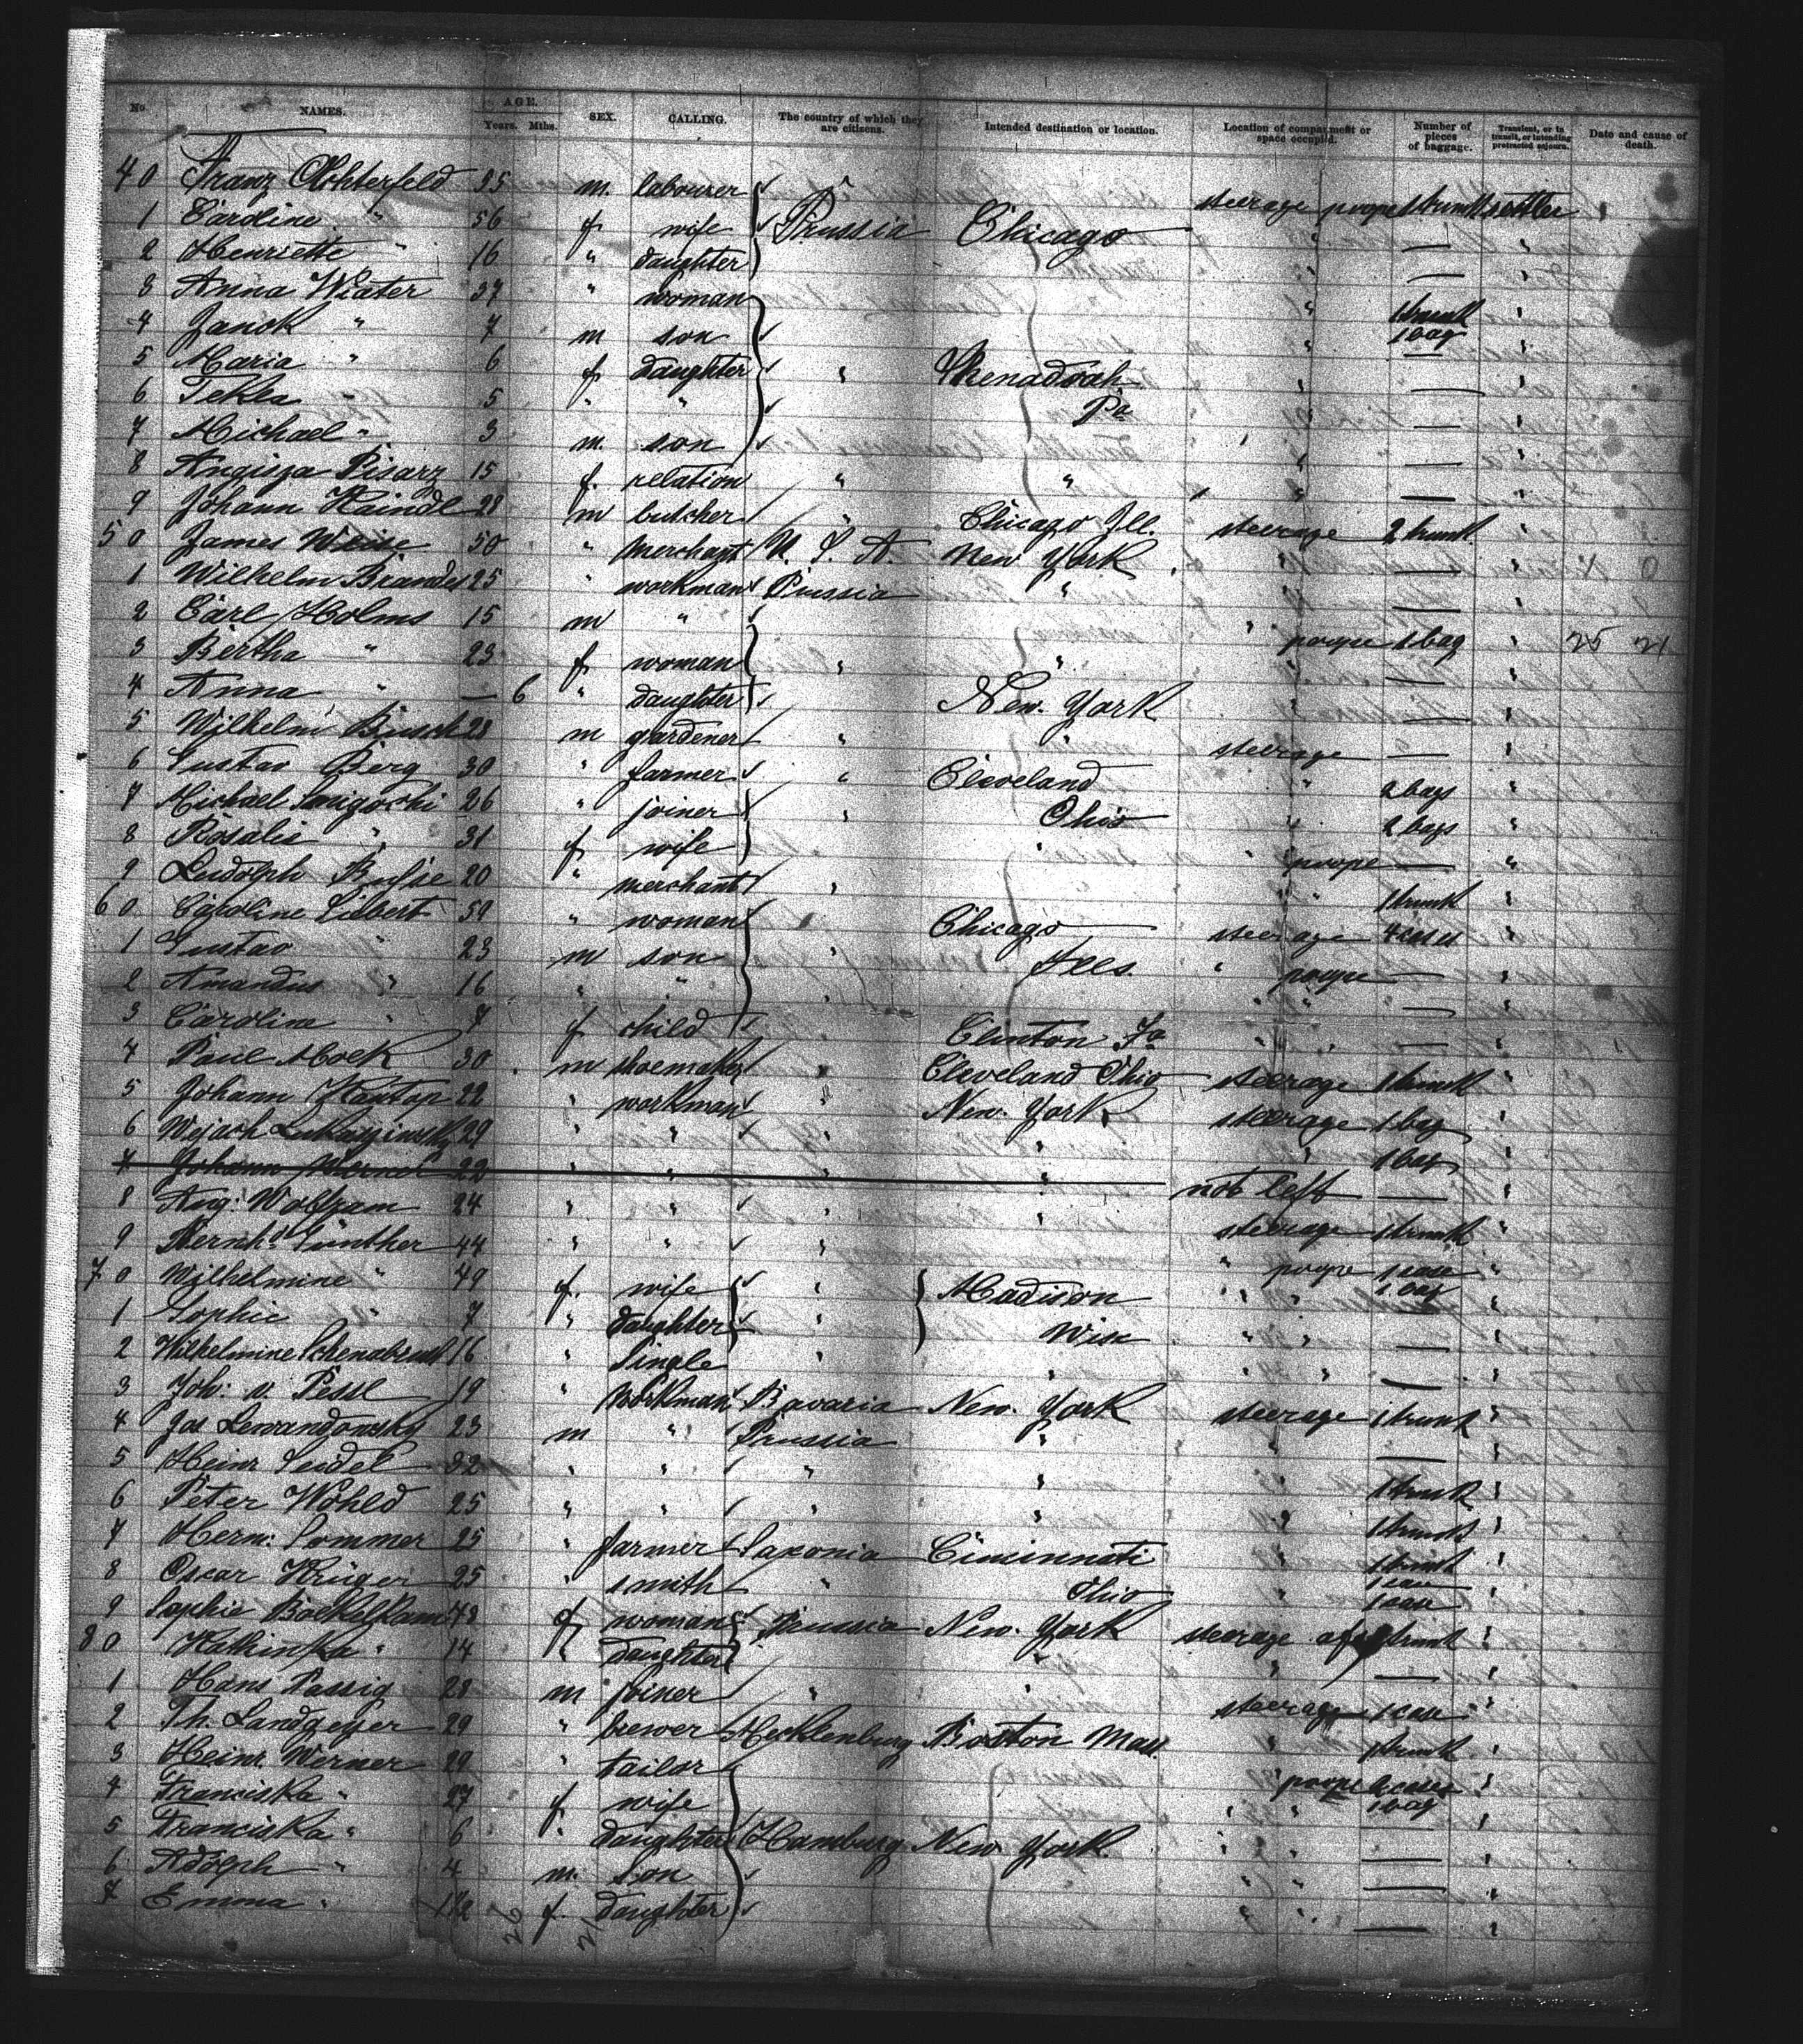 No NAMES. AGE. Years. Mths. SEX. CALLING. The country of which they are citizens. Intended destination or location. Location of compartment or space occupied. Number of pieces of baggage. Transient, or in transit, or intending protracted sojourn. Date and cause of death.
40 Franz Achterfeld m. labourer steerage poope 1 trunk settler
1 Caroline " 56 f wife Prussia Chicago " — "
2 Henriette " 16 " daughter " — "
3 Anna Wiater 37 " woman " 1 trunk 1 bag "
4 Janok " 7 m son " — "
5 Maria " 6 f daughter " Shenadoah " — "
6 Tekla " 5 " " Pa " — "
7 Michael " 3 m. son " — "
8 Pisarz 15 f. relation " " " — "
9 Johann Haindl 28 m butcher " Chicago Ill. steerage 2 trunk "
50 James 50 " merchant U. S. A. New York " — "
1 Wilhelm Brandes 25 " workman Prussia " " — "
2 Carl Holms 15 m " " poope 1 bag " 25 21
3 Bertha " 23 f woman " " " — "
4 Anna " — 6 " daughter New. York " — "
5 Wilhelm Busch 28 m gardener " " steerage — "
6 Gustav Berg 30 " farmer " Cleveland " 2 bags "
7 Michael 26 " joiner " Ohio " 2 bags "
8 Rosalie " 31 f wife " " poope — "
9 Ludolph 20 " merchant " " 1 trunk "
60 Caroline Liebert 59 " woman Chicago steerage 4 cases "
1 Gustav " 23 m son " Ills. " poope — "
2 Amandus " 16 " " " " " — "
3 Carolina " 7 f child Clinton Ja " " — "
4 Paul Mock 30 m shoemaker " Cleveland Ohio steerage 1 trunk "
5 Johann 22 " workman " New. York steerage 1 bag "
6 Wojach 29 " " " " " 1 bag "
7 Johann 22 " " " not left — "
8 Aug: Wolfram 24 " " " " steerage 1 trunk "
9 Bernhd Günther 44 " " " " poope 1 case "
70 Wilhelmine " 49 f. wife " Madison " " 1 bag "
1 Sophie " 7 " daughter " Wisc " " — "
2 Wilhelmine 16 " Single " " " " — "
3 Joh: v. Pessl 19 " Workman Bavaria New. York steerage 1 trunk "
4 Jos Lewandowsky 23 m " Prussia " " — "
5 Heinr Seidel 32 " " " " 1 trunk "
6 Peter Wohld 25 " " " " " 1 trunk "
7 Herm: Sommer 25 " farmer Saxonia Cincinnati " 1 trunk 1 case "
8 Oscar Krüger 25 " smith " Ohio " 1 case "
9 Sophie 48 f woman Prussia New. York steerage aft 1 trunk "
80 Kathinka " 14 " daughter " " — "
1 Hans Passig 28 m joiner " " steerage 1 case "
2 Th. Landgeyer 29 " brewer Mecklenburg Boston Mass. " 1 trunk "
3 Heinr. Werner 29 " tailor " poope 2 cases "
4 Franciska " 27 f wife " " 1 bag "
5 Franciska " 6 " daughter Hamburg New York. " " — "
6 Adolph " 4 m. son " " — "
7 Emma " f. daughter " " — "
26 21